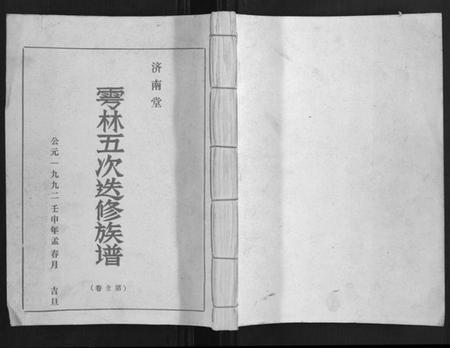 济南堂
雩林五次迭修族谱
公元一九九二壬申年孟春月 吉旦